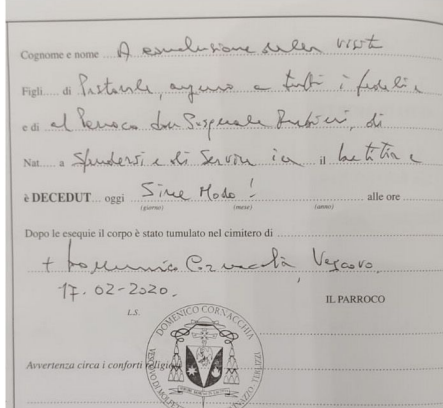 Cognome e nome A conclusione della visita
Figli di Pastorale, auguro a tutti i fedeli e
e di al Parroco don Pasquale, di
Nat. a Spendersi e di Servire in il laetitia e
è DECEDUT oggi Sine Modo! alle ore
(giorno) (mese) (anno)
Dopo le esequie il corpo è stato tumulato nel cimitero di
+ Domenico Cornacchia Vescovo
17.02-2020.
L.S. IL PARROCO
DOMENICO CORNACCHIA
Avvertenza circa i conforti religiosi
VESCOVO DI MOLFETTA TERLIZZI